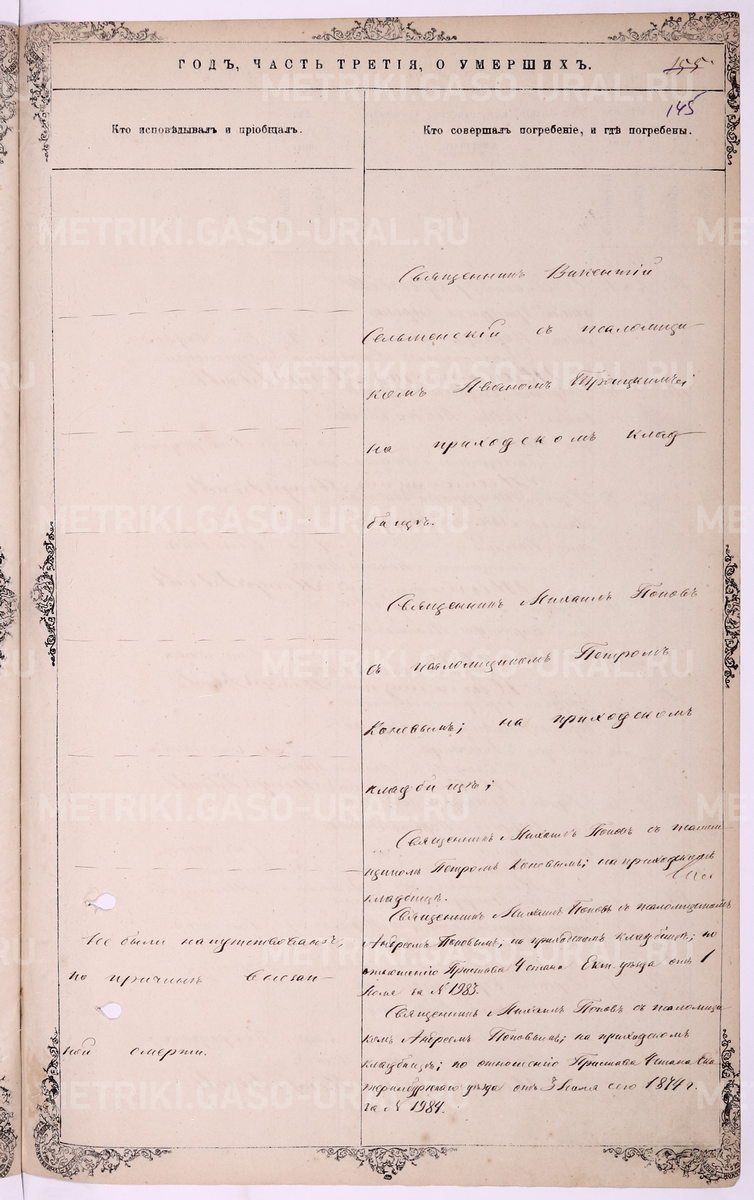 ГОДЪ, ЧАСТЬ ТРЕТІЯ, О УМЕРШИХЪ.
155
145
Кто исповѣдывалъ и пріобщалъ.
Кто совершалъ погребеніе, и гдѣ погребены.
METRIKI.GASO-URAL.RU
Священникъ Викентій
Сельменскій съ псаломщи-
комъ Иваномъ Троицкимъ;
на приходскомъ клад-
бищѣ.
Священникъ Михаилъ Поповъ
съ псаломщикомъ Петромъ
Коновымъ; на приходскомъ
кладбищѣ;
Священникъ Михаилъ Поповъ съ псаломщикомъ
Петромъ Коновымъ; на приходскомъ
кладбищѣ.
Священникъ Михаилъ Поповъ съ псаломщикомъ
Андреемъ Поповымъ; на приходскомъ кладбищѣ; по
отношенію Пристава 4 стана Екат. уѣзда отъ 1
Іюля за № 1983.
Не были напутствованы,
по причинѣ внезап-
ной смерти.
Священникъ Михаилъ Поповъ съ псаломщи-
комъ Андреемъ Поповымъ; на приходскомъ
кладбищѣ; по отношенію Пристава 4 стана Ека-
теринбургскаго уѣзда отъ 3 Іюля сего 1874 г.
за № 1984.